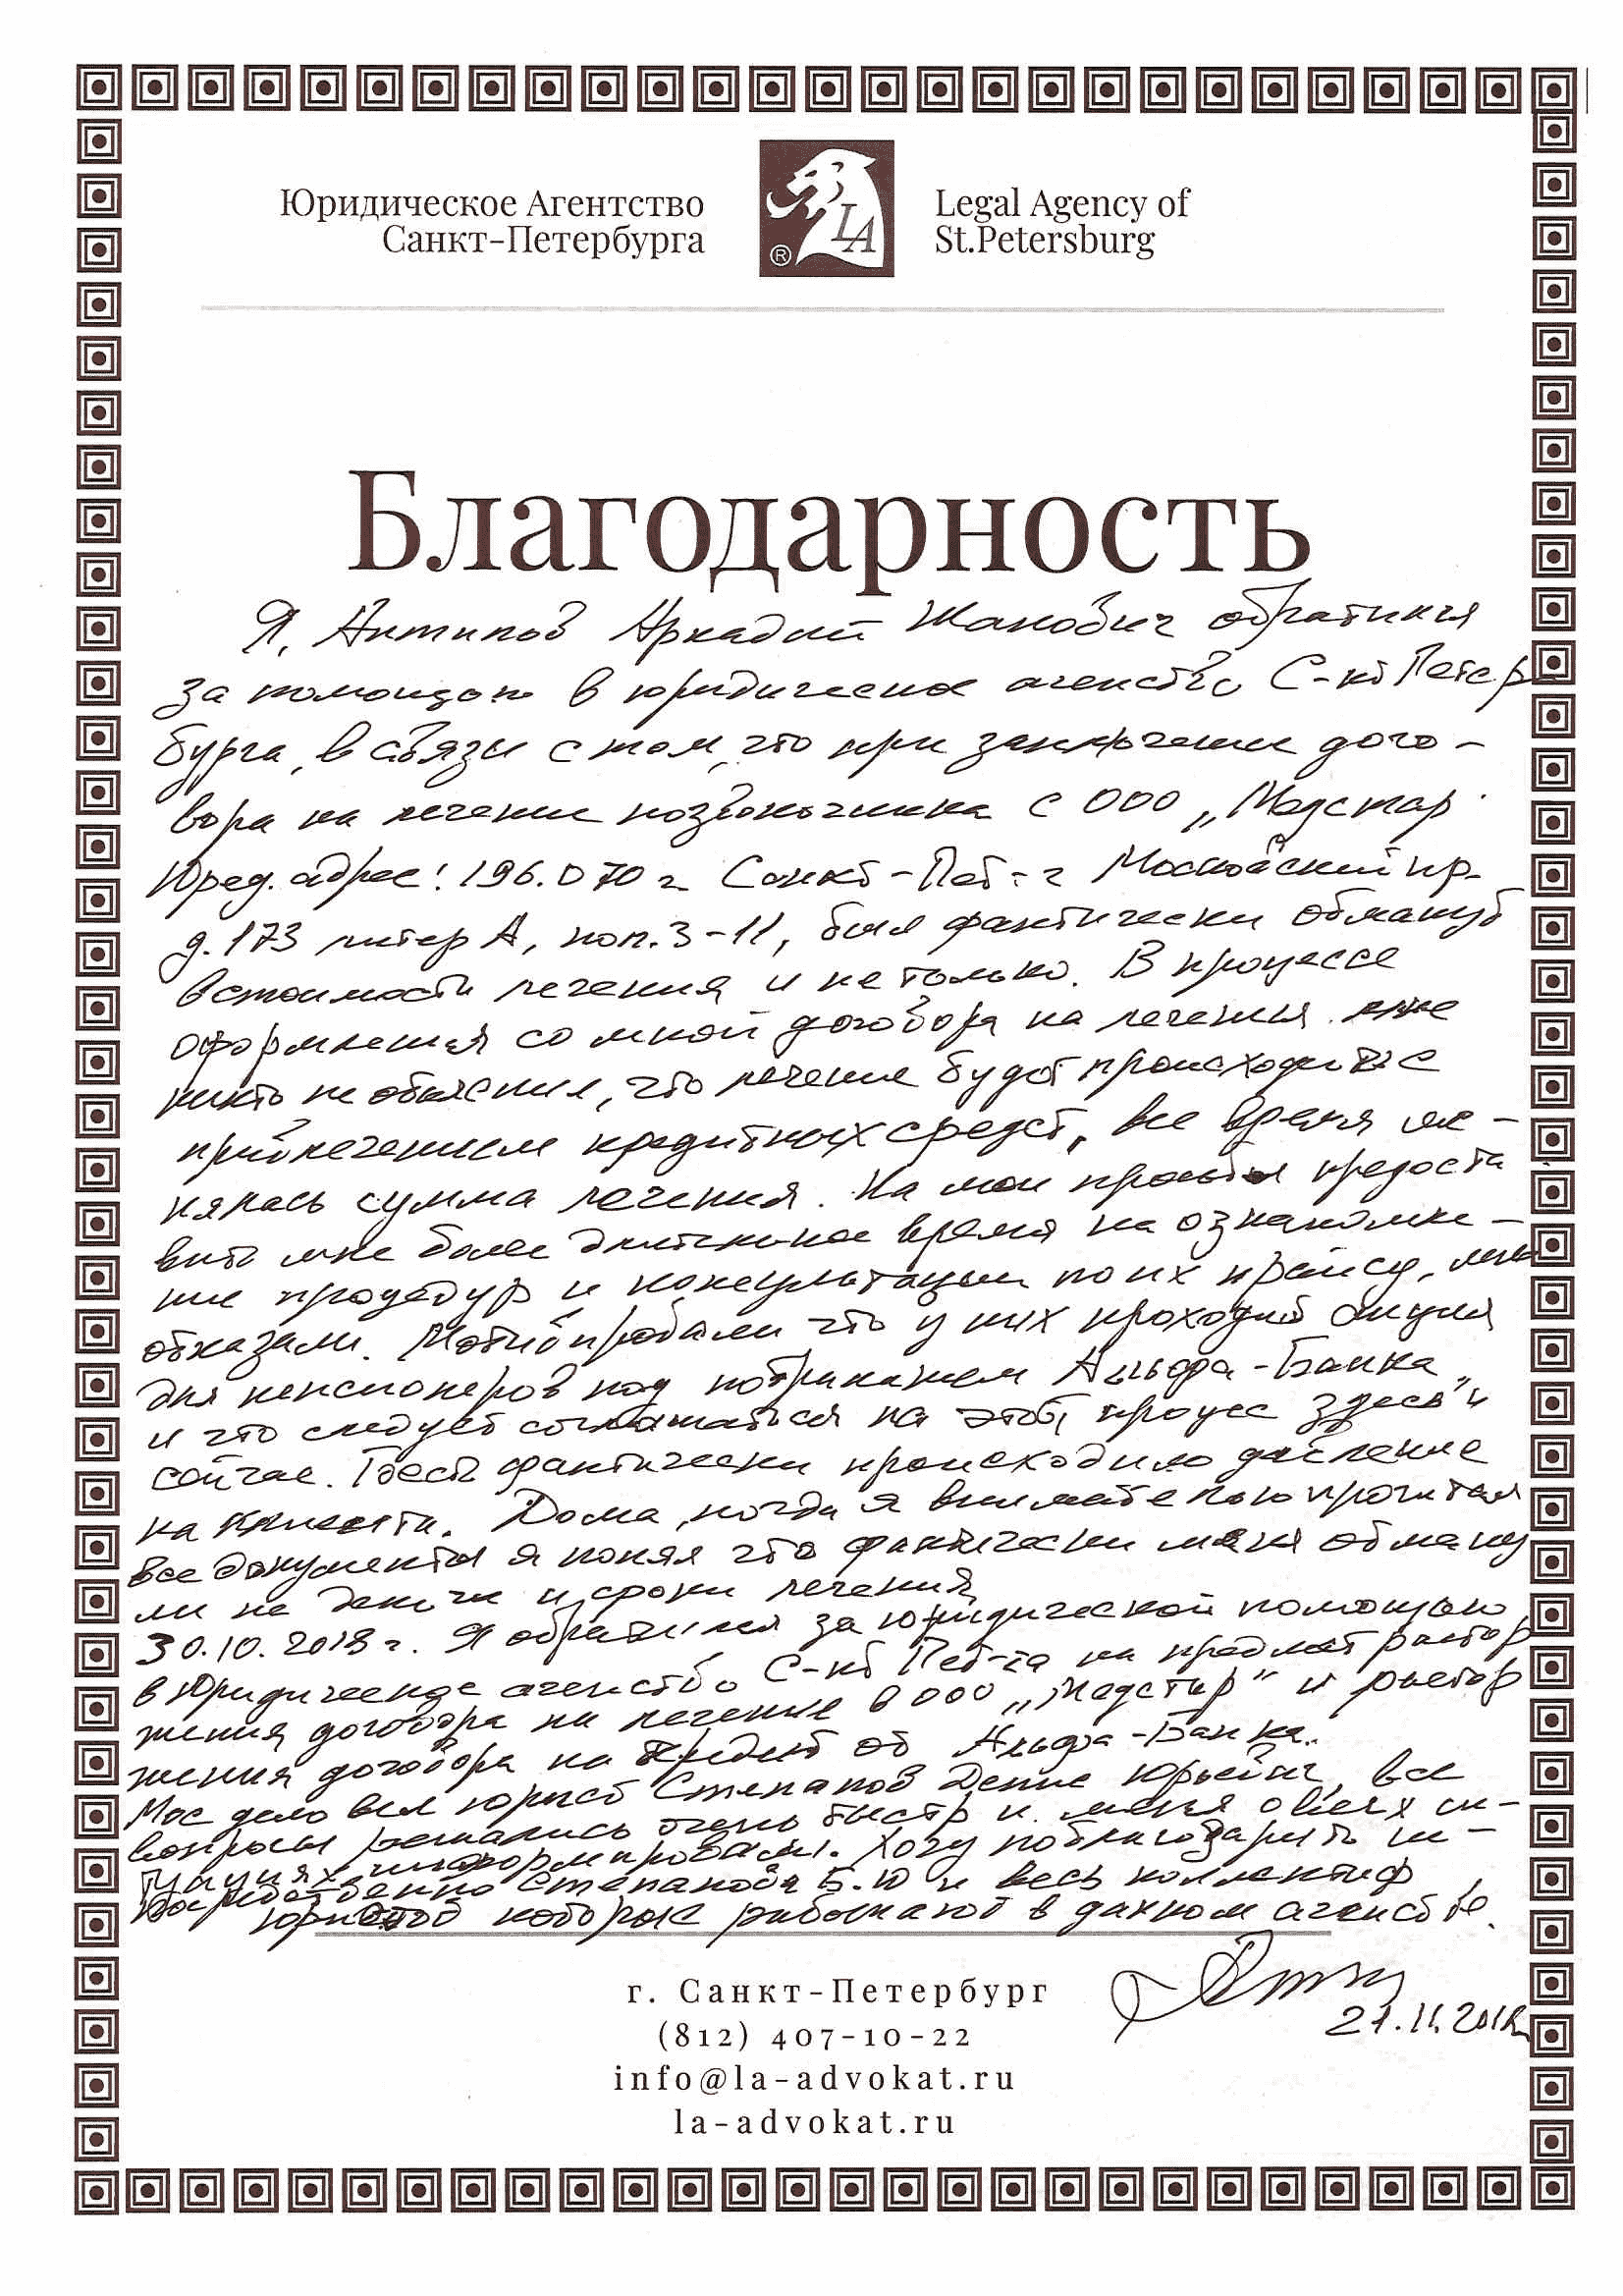 Юридическое Агентство
Санкт-Петербурга
Legal Agency of
St.Petersburg
LA
®
Благодарность
Я, Антипов Аркадий Жанович обратился
за помощью в юридическое агенство С-кт Петер
бурга, в связи с тем, что при заключении дого-
вора на лечение позвоночника с ООО „Медстар
Юред. адрес: 196.070 г. Санкт-Пет-г Московский пр.
д. 173 литер А, пом. 3-11, был фактически обманут
в стоимости лечения и не только. В процессе
оформления со мной договора на лечения мне
никто не объяснил, что лечение будет происходить с
привлечением кредитных средст, все время ме-
нялась сумма лечения. На мои просьбы предоста
вить мне более длительное время на ознакомле-
ние процедур и консультации по их прайсу, мне
отказали. Мотивировали что у них проходит акция
для пенсионеров под патронажем Альфа-Банка
и что следует соглашаться на этот процес здесь и
сейчас. Тоесть фактически происходило давление
на клиента. Дома, когда я внимательно прочитал
все документы я понял что фактически меня обману
ли на деньги и сроки лечения
30.10.2018г. Я обратился за юридической помощью
в Юридическое агенство С-кт Пет-га на предмет растор
жения договора на лечение в ООО „Медстар" и растор
жения договора на кредит от Альфа-Банка.
Мое дело вел юрист Степанов Денис Юрьевич, все
вопросы решались очень быстр и меня о всех си-
туациях информировали. Хочу поблагодарить не-
посредственно Степанова Б.Ю и весь коллектиф
юристов которые работают в данном агенстве.
27.11.2018
г. Санкт-Петербург
(812) 407-10-22
info@la-advokat.ru
la-advokat.ru